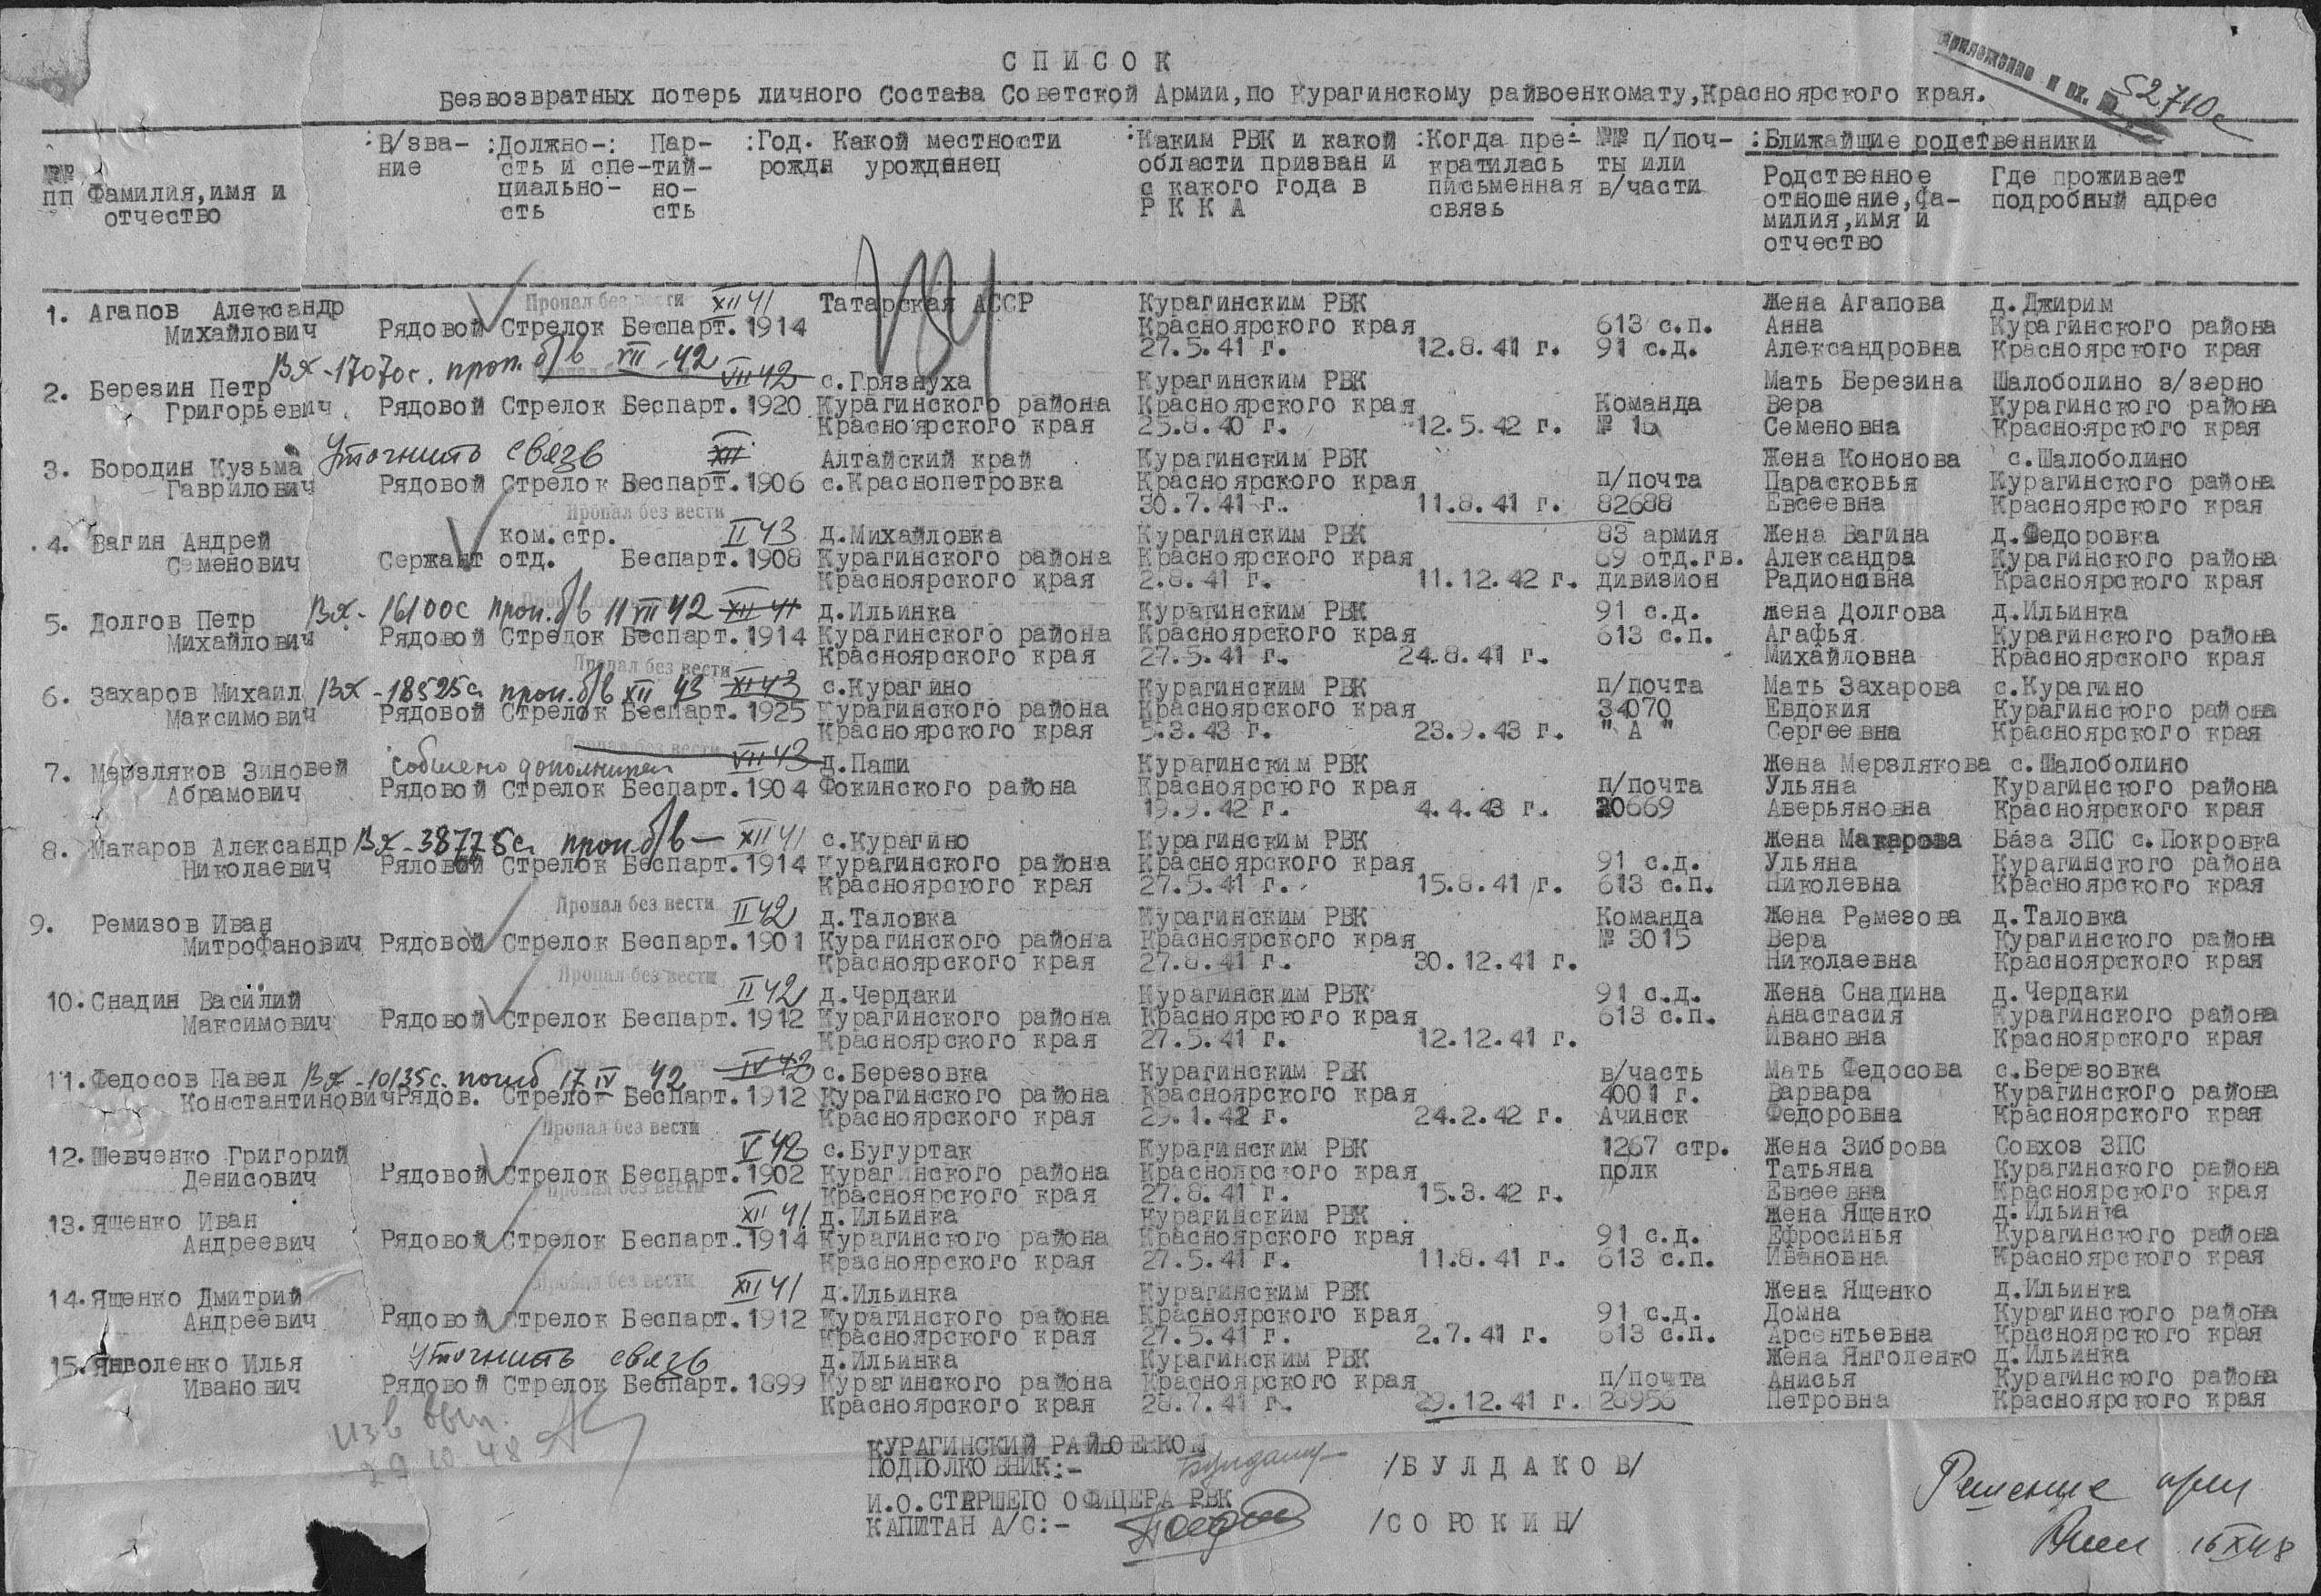 СПИСОК
Приложение к вх. № 52710с
Безвозвратных потерь личного Состава Советской Армии,по Курагинскому райвоенкомату,Красноярского края.
№№ пп Фамилия,имя и отчество :В/зва-ние :Должно-сть и спе-циально-сть : Пар-тий-но-сть :Год. рожды Какой местности урожденец :Каким РВК и какой области призван и с какого года в Р К К А :Когда пре-кратилась письменная связь №№ п/поч-ты или в/части :Ближайшие родственники
Родственное отношение,фа-милия,имя и отчество Где проживает подробный адрес
Пропал без вести XII 41 Татарская АССР Курагинским РВК Жена Агапова д.Джирим
1. Агапов Александр Михайлович Рядовой Стрелок Беспарт. 1914 Красноярского края 613 с.п. Анна Курагинского района
27.5.41 г. 12.8.41 г. 91 с.д. Александровна Красноярского края
Вх-17070с. проп. б/в VII-42 VII 42 с.Грязнуха Курагинским РВК Мать Березина Шалоболино з/зерно
2. Березин Петр Григорьевич Рядовой Стрелок Беспарт. 1920 Курагинского района Красноярского края Команда Вера Курагинского района
Красноярского края 25.8.40 г. 12.5.42 г. № 16 Семеновна Красноярского края
Уточнить связь XII Алтайский край Курагинским РВК Жена Кононова с.Шалоболино
3. Бородин Кузьма Гаврилович Рядовой Стрелок Беспарт. 1906 с.Краснопетровка Красноярского края п/почта Парасковья Курагинского района
30.7.41 г. 11.8.41 г. 82688 Евсеевна Красноярского края
Пропал без вести
ком.стр. II 43 д.Михайловка Курагинским РВК 83 армия Жена Вагина д.Федоровка
4. Вагин Андрей Семенович Сержант отд. Беспарт. 1908 Курагинского района Красноярского края 69 отд.гв. Александра Курагинского района
Красноярского края 2.8.41 г. 11.12.42 г. дивизион Радионовна Красноярского края
Вх-16100с проп. б/в 11 VII 42 XII 41 д.Ильинка Курагинским РВК 91 с.д. жена Долгова д.Ильинка
5. Долгов Петр Михайлович Рядовой Стрелок Беспарт. 1914 Курагинского района Красноярского края 613 с.п. Агафья Курагинского района
Красноярского края 27.5.41 г. 24.8.41 г. Михайловна Красноярского края
Пропал без вести
Вх-18525с. проп. б/в XII 43 XI 43 с.Курагино Курагинским РВК п/почта Мать Захарова с.Курагино
6. Захаров Михаил Максимович Рядовой Стрелок Беспарт. 1925 Курагинского района Красноярского края 34070 Евдокия Курагинского района
Красноярского края 5.3.43 г. 23.9.43 г. " А " Сергеевна Красноярского края
Пропал без вести VII 43 д.Паши Курагинским РВК Жена Мерзлякова с.Шалоболино
7. Мерзляков Зиновей Абрамович Рядовой Стрелок Беспарт. 1904 Фокинского района Красноярского края п/почта Ульяна Курагинского района
19.9.42 г. 4.4.43 г. 20669 Аверьяновна Красноярского края
Вх-38775с. проп. б/в - XII 41 с.Курагино Курагинским РВК Жена Макарова База ЗПС с.Покровка
8. Макаров Александр Николаевич Рядовой Стрелок Беспарт. 1914 Курагинского района Красноярского края 91 с.д. Ульяна Курагинского района
Красноярского края 27.5.41 г. 15.8.41 г. 613 с.п. Николевна Красноярского края
Пропал без вести II 42 д.Таловка Курагинским РВК Команда Жена Ремезова д.Таловка
9. Ремизов Иван Митрофанович Рядовой Стрелок Беспарт. 1901 Курагинского района Красноярского края № 3015 Вера Курагинского района
Красноярского края 27.8.41 г. 30.12.41 г. Николаевна Красноярского края
Пропал без вести
II 42 д.Чердаки Курагинским РВК 91 с.д. Жена Снадина д.Чердаки
10. Снадин Василий Максимович Рядовой Стрелок Беспарт. 1912 Курагинского района Красноярского края 613 с.п. Анастасия Курагинского района
Красноярского края 27.5.41 г. 12.12.41 г. Ивановна Красноярского края
Вх-10135с. погиб 17 IV 42 IV 42 с.Березовка Курагинским РВК в/часть Мать Федосова с.Березовка
11. Федосов Павел Константинович Рядов. Стрелок Беспарт. 1912 Курагинского района Красноярского края 4001 г. Варвара Курагинского района
Красноярского края 29.1.42 г. 24.2.42 г. Ачинск Федоровна Красноярского края
Пропал без вести
V 42 с.Бугуртак Курагинским РВК 1267 стр. Жена Зиброва Совхоз ЗПС
12. Шевченко Григорий Денисович Рядовой Стрелок Беспарт. 1902 Курагинского района Красноярского края полк Татьяна Курагинского района
Красноярского края 27.8.41 г. 15.3.42 г. Евсеевна Красноярского края
Пропал без вести
XII 41 д.Ильинка Курагинским РВК жена Ященко д.Ильинка
13. Ященко Иван Андреевич Рядовой Стрелок Беспарт. 1914 Курагинского района Красноярского края 91 с.д. Ефросинья Курагинского района
Красноярского края 27.5.41 г. 11.8.41 г. 613 с.п. Ивановна Красноярского края
Пропал без вести XII 41 д.Ильинка Курагинским РВК Жена Ященко д.Ильинка
14. Ященко Дмитрий Андреевич Рядовой Стрелок Беспарт. 1912 Курагинского района Красноярского края 91 с.д. Домна Курагинского района
Красноярского края 27.5.41 г. 2.7.41 г. 613 с.п. Арсентьевна Красноярского края
Уточнить связь д.Ильинка Курагинским РВК Жена Янголенко д.Ильинка
15. Янголенко Илья Иванович Рядовой Стрелок Беспарт. 1899 Курагинского района Красноярского края п/почта Анисья Курагинского района
Красноярского края 28.7.41 г. 29.12.41 г. 26956 Петровна Красноярского края
29.10.48
КУРАГИНСКИЙ РАЙВОЕНКОМ
ПОДПОЛКОВНИК:- /Б У Л Д А К О В/
И.О.СТАРШЕГО ОФИЦЕРА РВК
КАПИТАН А/С:- /С О Р О К И Н/
Решение
16 XI 48